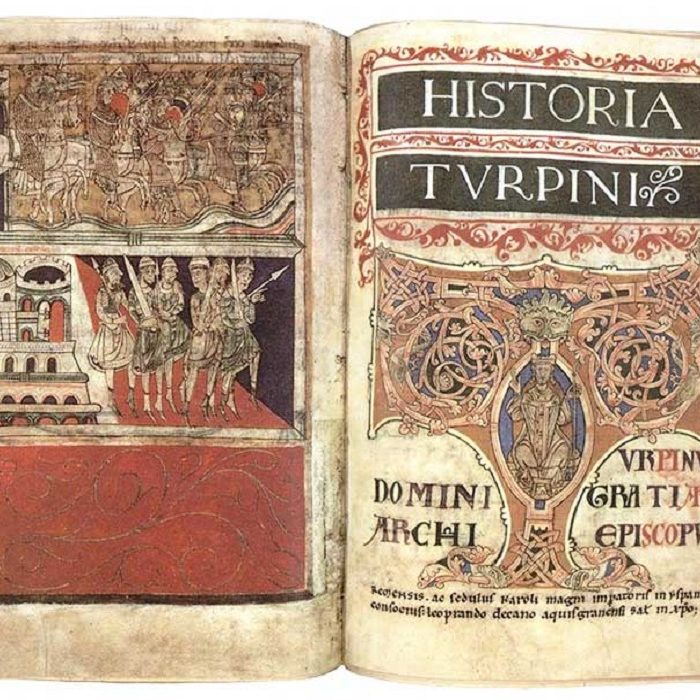 HISTORIA
TVRPINI
TVRPINV
DOMINI GRATIA
ARCHI EPISCOPV
REMENSIS. ac sedulus karoli magni impatoris in yspan
consocius: leoprando decano aquisgranensi salt in xpo;